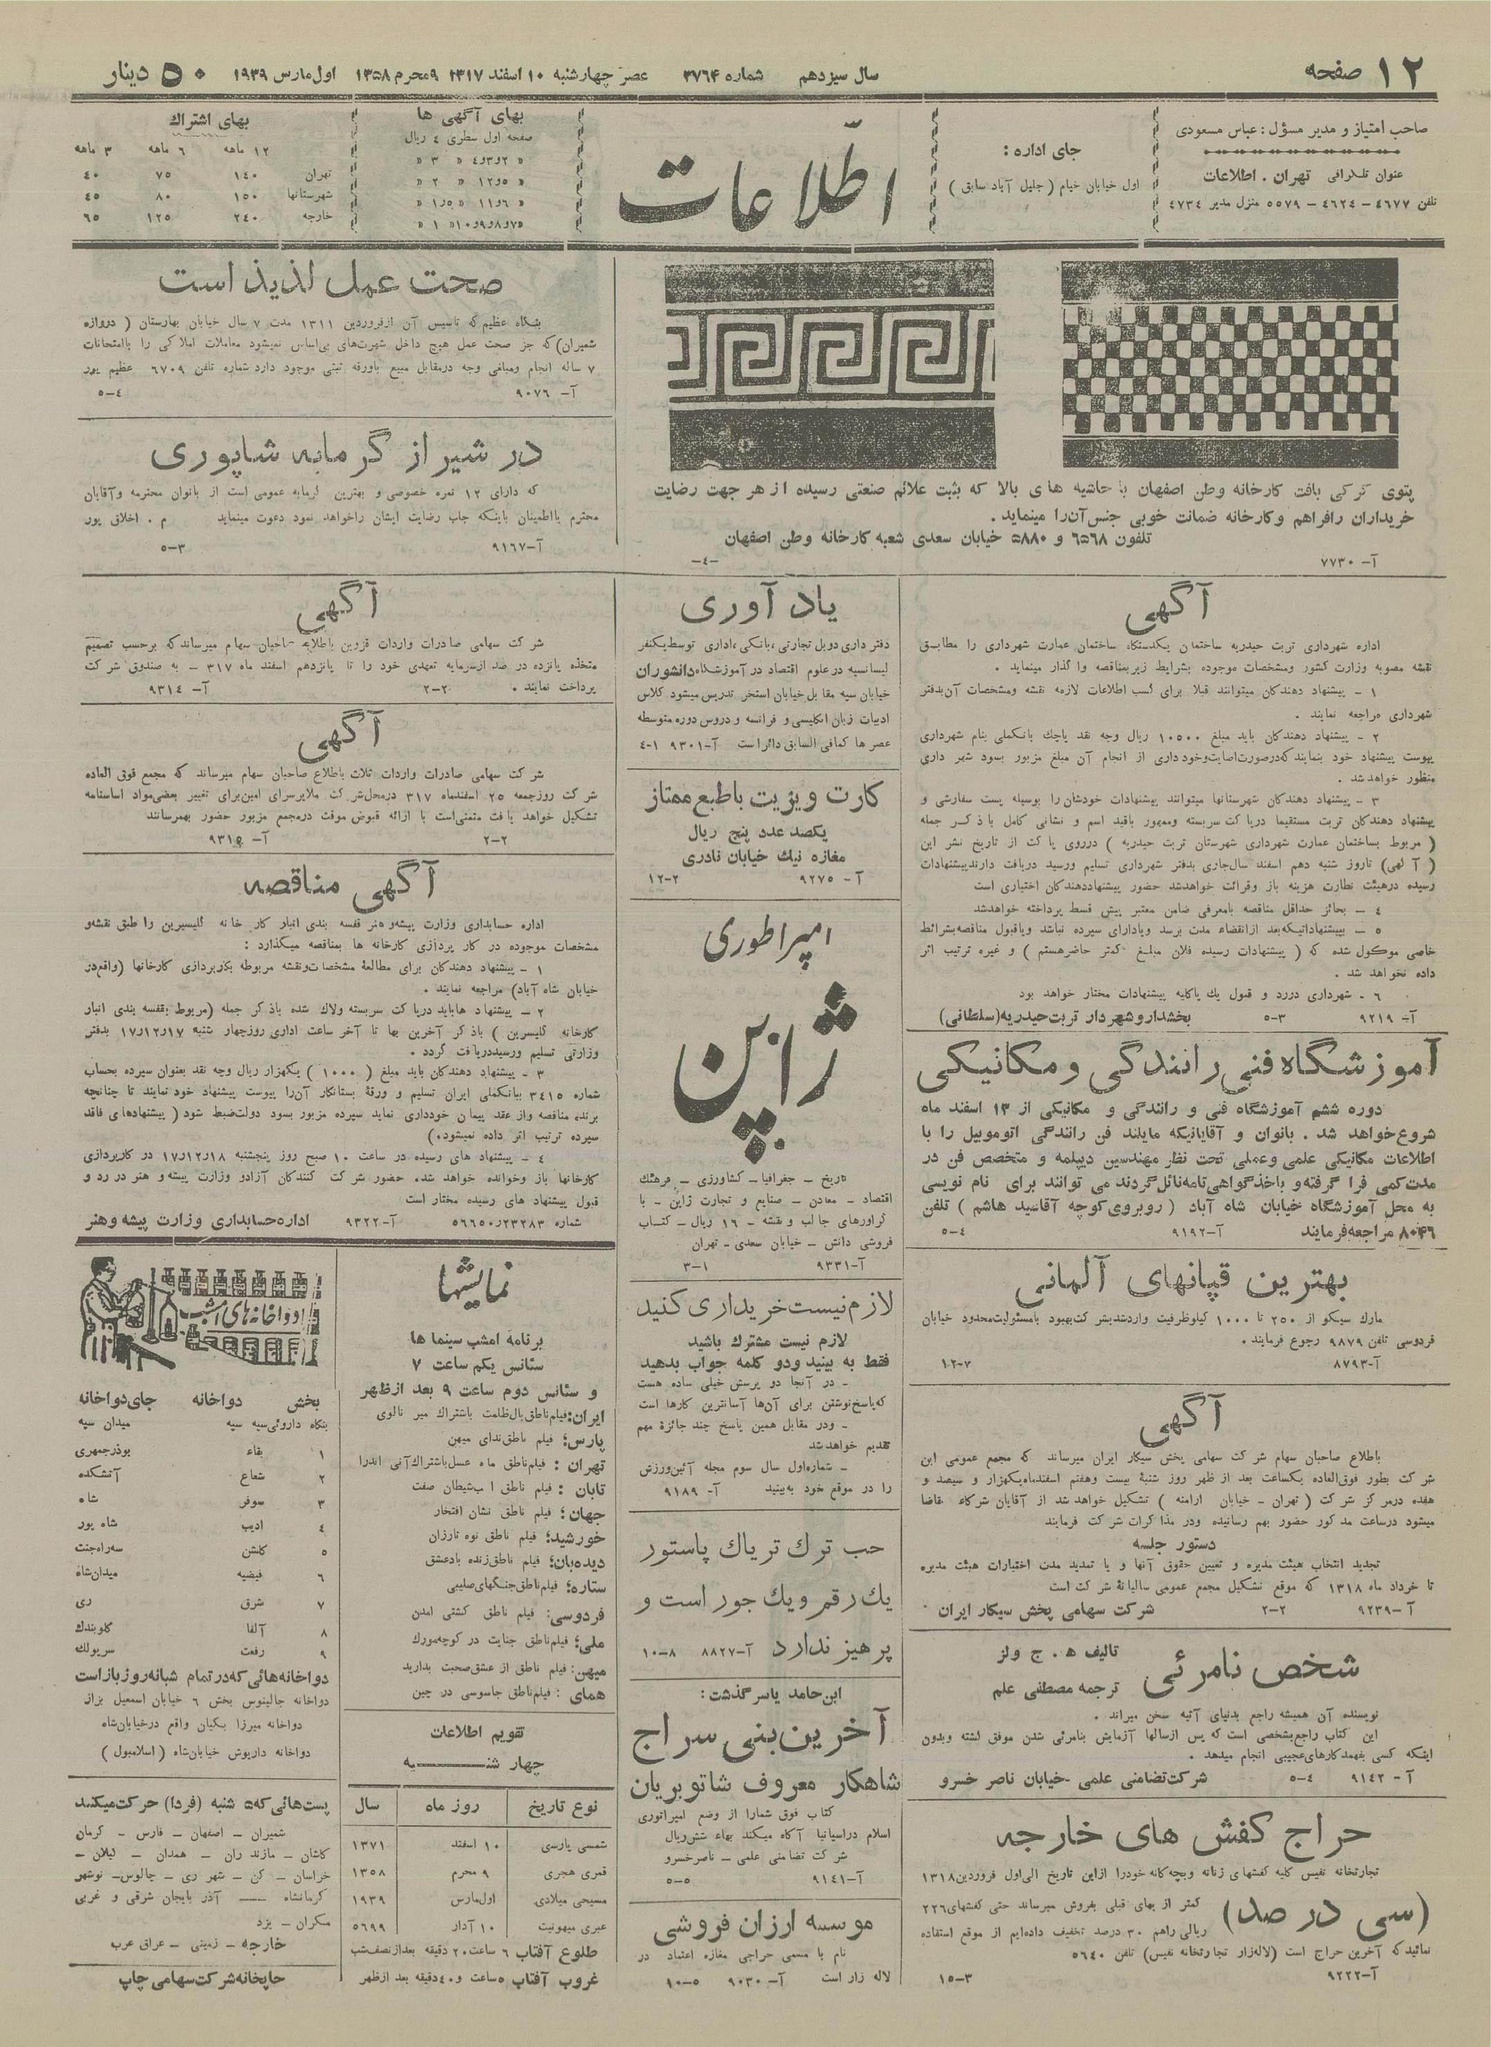 ۱۲ صفحه
سال سیزدهم
شماره ۳۷۶۴
عصر چهارشنبه ۱۰ اسفند ۱۳۱۷
۹ محرم ۱۳۵۸
اول مارس ۱۹۳۹
۵۰ دینار
صاحب امتیاز و مدیر مسؤل : عباس مسعودی
عنوان تلگرافی تهران . اطلاعات
تلفن ۴۶۷۷ – ۴۶۲۴ – ۵۵۷۹ منزل مدیر ۴۷۳۴
جای اداره :
اول خیابان خیام ( جلیل آباد سابق )
اطلاعات
بهای آگهی ها
صفحه اول سطری ۴ ریال
« ۲و۳و۴ « ۳ «
« ۵و۱۲ « ۲ «
بهای اشتراك
۱۲ ماهه ۶ ماهه ۳ ماهه
تهران ۱۴۰ ۷۵ ۴۰
شهرستانها ۱۵۰ ۸۰ ۴۵
خارجه ۲۴۰ ۱۲۵ ۶۵
پتوی کرکی بافت کارخانه وطن اصفهان با حاشیه های بالا که بثبت علائم صنعتی رسیده از هر جهت رضایت
خریداران رافراهم وکارخانه ضمانت خوبی جنس آن را مینماید .
تلفون ۶۵۶۸ و ۵۸۸۰ خیابان سعدی شعبه کارخانه وطن اصفهان
آ- ۷۷۳۰
-۴-
صحت عمل لذیذ است
بنگاه عظیم که تاسیس آن ازفروردین ۱۳۱۱ مدت ۷ سال خیابان بهارستان ( دروازه
شمیران) که جز صحت عمل هیچ داخل شهرت‌های بی‌اساس نمیشود معاملات املاکی را باامتحانات
۷ ساله انجام ومبالغی وجه درمقابل مبیع باورقه ثبتی موجود دارد شماره تلفن ۶۷۰۹ عظیم پور
آ- ۹۰۷۶
۵-۴
در شیراز گرمابه شاپوری
که دارای ۱۲ نمره خصوصی و بهترین گرمابه عمومی است از بانوان محترمه وآقایان
محترم بااطمینان باینکه جلب رضایت ایشان راخواهد نمود دعوت مینماید م . اخلاق پور
آ-۹۱۶۷
۵-۳
آگهی
اداره شهرداری تربت حیدریه ساختمان یکدستگاه ساختمان عمارت شهرداری را مطابق
نقشه مصوبه وزارت کشور ومشخصات موجوده بشرایط زیر بمناقصه واگذار مینماید .
۱ – پیشنهاد دهندگان میتوانند قبلا برای کسب اطلاعات لازمه نقشه ومشخصات آن بدفتر
شهرداری مراجعه نمایند .
۲ – پیشنهاد دهندگان باید مبلغ ۱۰۵۰۰ ریال وجه نقد یاچك بانکملی بنام شهرداری
پیوست پیشنهاد خود بنمایند که درصورت اصابت وخود داری از انجام آن مبلغ مزبور بسود شهر داری
منظور خواهد شد .
۳ – پیشنهاد دهندگان شهرستانها میتوانند پیشنهادات خودشان را بوسیله پست سفارشی و
پیشنهاد دهندگان تربت مستقیما درپاکت سربسته وممهور باقید اسم و نشانی کامل با ذکر جمله
( مربوط بساختمان عمارت شهرداری شهرستان تربت حیدریه ) درروی پاکت از تاریخ نشر این
( آگهی) تاروز شنبه دهم اسفند سال‌جاری بدفتر شهرداری تسلیم ورسید دریافت دارند پیشنهادات
رسیده درهیئت نظارت هزینه باز وقرائت خواهد شد حضور پیشنهاد دهندگان اختیاری است
۴ – بحائز حداقل مناقصه بامعرفی ضامن معتبر پیش قسط پرداخته خواهد شد
۵ – بپیشنهاداتیکه بعد ازانقضاء مدت برسد ویادارای سپرده نباشد ویاقبول مناقصه بشرائط
خاصی موکول شده که ( پیشنهادات رسیده فلان مبلغ کمتر حاضرهستم ) و غیره ترتیب اثر
داده نخواهد شد .
۶ - شهرداری دررد و قبول یك یاکلیه پیشنهادات مختار خواهد بود
آ- ۹۲۱۹ ۵-۳ بخشدار وشهردار تربت حیدریه (سلطانی)
آموزشگاه فنی رانندگی و مکانیکی
دوره ششم آموزشگاه فنی و رانندگی و مکانیکی از ۱۳ اسفند ماه
شروع خواهد شد . بانوان و آقایانیکه مایلند فن رانندگی اتوموبیل را با
اطلاعات مکانیکی علمی وعملی تحت نظر مهندسین دیپلمه و متخصص فن در
مدت کمی فرا گرفته و باخذ گواهی نامه نائل گردند می توانند برای نام نویسی
به محل آموزشگاه خیابان شاه آباد ( روبروی کوچه آقاسید هاشم ) تلفن
۸۰۴۶ مراجعه فرمایند آ-۹۱۹۲ ۵-۴
بهترین قپانهای آلمانی
مارك سیکو از ۲۵۰ تا ۱۰۰۰ کیلو ظرفیت وارد شد بشرکت بهبود بامسئولیت محدود خیابان
فردوسی تلفن ۹۸۷۹ رجوع فرمایند .
آ-۸۷۹۳
۱۲-۷
آگهی
باطلاع صاحبان سهام شرکت سهامی پخش سیگار ایران میرساند که مجمع عمومی این
شرکت بطور فوق‌العاده یکساعت بعد از ظهر روز شنبه بیست وهفتم اسفندماه یکهزار و سیصد و
هفده درمرکز شرکت ( تهران – خیابان ارامنه ) تشکیل خواهد شد از آقایان شرکاء تقاضا
میشود درساعت مذکور حضور بهم رسانیده ودر مذاکرات شرکت فرمایند
دستور جلسه
تجدید انتخاب هیئت مدیره و تعیین حقوق آنها و یا تمدید مدت اختیارات هیئت مدیره
تا خرداد ماه ۱۳۱۸ که موقع تشکیل مجمع عمومی سالیانه شرکت است
آ -۹۲۳۹ ۲-۲ شرکت سهامی پخش سیگار ایران
شخص نامرئی
تالیف ه . ج ولز
ترجمه مصطفی علم
نویسنده آن همیشه راجع بدنیای آتیه سخن میراند .
این کتاب راجع بشخصی است که پس ازسالها آزمایش بنامرئی شدن موفق گشته وبدون
اینکه کسی بفهمد کارهای عجیبی انجام میدهد .
آ- ۹۱۴۲ ۵-۴ شرکت تضامنی علمی - خیابان ناصر خسرو
حراج کفش های خارجه
تجارتخانه نفیس کلیه کفشهای زنانه وبچه‌گانه خودرا ازاین تاریخ الی اول فروردین ۱۳۱۸
(سی در صد)
کمتر از بهای قبلی بفروش میرساند حتی کفشهای ۲۲۶
ریالی راهم ۳۰ درصد تخفیف داده‌ایم از موقع استفاده
نمائید که آخرین حراج است (لاله‌زار تجارتخانه نفیس) تلفن ۵۶۴۰
آ-۹۲۲۲
۱۵-۳
یاد آوری
دفتر داری دوبل تجارتی ،بانکی ،اداری توسط یکنفر
لیسانسیه درعلوم اقتصاد در آموزشگاه دانشوران
خیابان سپه مقابل خیابان استخر تدریس میشود کلاس
ادبیات زبان انگلیسی و فرانسه و دروس دوره متوسطه
عصر ها کمافی السابق دائر است آ-۹۳۰۱ ۴-۱
کارت ویزیت با طبع ممتاز
یکصد عدد پنج ریال
مغازه نیك خیابان نادری
آ- ۹۲۷۵ ۱۲-۲
امپراطوری
ژاپن
تاریخ – جغرافیا – کشاورزی – فرهنگ
اقتصاد – معادن – صنایع و تجارت ژاپن – با
گراورهای جالب و نقشه – ۱۶ ریال – کتاب
فروشی دانش – خیابان سعدی – تهران
آ-۹۳۳۱ ۳-۱
لازم نیست خریداری کنید
لازم نیست مشترك باشید
فقط به بینید ودو کلمه جواب بدهید
– در آنجا دو پرسش خیلی ساده هست
که پاسخ نوشتن برای آن‌ها آسانترین کارها است
– ودر مقابل همین پاسخ چند جائزه مهم
تقدیم خواهد شد
– شماره اول سال سوم مجله آئین ورزش
را در موقع خود به بینید آ- ۹۱۸۹
حب ترك تریاك پاستور
یك رقم ویك جور است و
پرهیز ندارد آ-۸۸۲۷ ۱۰-۸
ابن حامد یا سرگذشت :
آخرین بنی سراج
شاهکار معروف شاتوبریان
کتاب فوق شمارا از وضع امپراتوری
اسلام دراسپانیا آگاه میکند بهاء شش ریال
شرکت تضامنی علمی – ناصر خسرو
آ-۹۱۴۱ ۵-۵
موسسه ارزان فروشی
نام با مسمی حراجی مغازه اعتماد در
لاله زار است آ- ۹۰۳۰ ۱۰-۵
آگهی
شرکت سهامی صادرات واردات قزوین باطلاع صاحبان سهام میرساند که برحسب تصمیم
متخذه پانزده در صد ازسرمایه تعهدی خود را تا پانزدهم اسفند ماه ۳۱۷ – به صندوق شرکت
پرداخت نمایند . ۲-۲ آ- ۹۳۱۴
آگهی
شرکت سهامی صادرات واردات ثلاث باطلاع صاحبان سهام میرساند که مجمع فوق العاده
شرکت روز جمعه ۲۵ اسفندماه ۳۱۷ درمحل شرکت ملایر سرای امین برای تغییر بعضی مواد اساسنامه
تشکیل خواهد یافت متمنی است با ارائه قبوض موقت درمجمع مزبور حضور بهمرسانند
۲-۲
آگهی مناقصه
اداره حسابداری وزارت پیشه و هنر قفسه بندی انبار کارخانه گلیسیرین را طبق نقشه و
مشخصات موجوده در کار پردازی کارخانه ها بمناقصه میگذارد :
۱ – پیشنهاد دهندگان برای مطالعه مشخصات ونقشه مربوطه بکارپردازی کارخانها (واقع در
خیابان شاه آباد) مراجعه نمایند .
۲ – پیشنهاد هاباید درپاکت سربسته ولاك شده باذکر جمله (مربوط بقفسه بندی انبار
کارخانه گلیسرین ) باذکر آخرین بها تا آخر ساعت اداری روز چهار شنبه ۱۷ر۱۲ر۱۷ بدفتر
وزارتی تسلیم ورسید دریافت گردد .
۳ – پیشنهاد دهندگان باید مبلغ ( ۱۰۰۰ ) یکهزار ریال وجه نقد بعنوان سپرده بحساب
شماره ۳۴۱۵ ببانکملی ایران تسلیم و ورقهٔ بستانکار آن‌را پیوست پیشنهاد خود نمایند تا چنانچه
برنده مناقصه واز عقد پیمان خودداری نماید سپرده مزبور بسود دولت ضبط شود ( پیشنهادهای فاقد
سپرده ترتیب اثر داده نمیشود.)
۴ – پیشنهاد های رسیده در ساعت ۱۰ صبح روز پنجشنبه ۱۸ر۱۲ر۱۷ در کارپردازی
کارخانها باز وخوانده خواهد شد. حضور شرکت کنندگان آزاد و وزارت پیشه و هنر در رد و
قبول پیشنهاد های رسیده مختار است
شماره ۲۳۲۸۳ر۵۶۶۵۰ آ-۹۳۲۲ اداره حسابداری وزارت پیشه وهنر
نمایشها
برنامه امشب سینما ها
سئانس یکم ساعت ۷
و سئانس دوم ساعت ۹ بعد از ظهر
ایران: فیلم ناطق بال ظلمت باشتراك میر نالوی
پارس؛ فیلم ناطق ندای میهن
تهران : فیلم ناطق ماه عسل باشتراك آنی اندرا
تابان : فیلم ناطق اسب شیطان صفت
جهان؛ فیلم ناطق نشان افتخار
خورشید؛ فیلم ناطق نوه تارزان
دیده‌بان؛ فیلم ناطق زنده بادعشق
ستاره؛ فیلم ناطق جنگهای صلیبی
فردوسی: فیلم ناطق کشتی امدن
ملی؛ فیلم ناطق جنایت در کوچه مورك
میهن: فیلم ناطق از عشق صحبت بدارید
همای : فیلم ناطق جاسوسی در چین
تقویم اطلاعات
چهار شنبه
نوع تاریخ روز ماه سال
شمسی پارسی ۱۰ اسفند ۱۳۷۱
قمری هجری ۹ محرم ۱۳۵۸
مسیحی میلادی اول مارس ۱۹۳۹
عبری صهیونیت ۱۰ آدار ۵۶۹۹
طلوع آفتاب ۶ ساعت ۲۰ دقیقه بعد از نصف شب
غروب آفتاب ۵ ساعت و ۴۰ دقیقه بعد از ظهر
دواخانه‌های امشب
بخش دواخانه جای دواخانه
بنگاه داروئی سپه سپه میدان سپه
۱ بقاء بوذرجمهری
۲ شعاع آتشکده
۳ سوفر شاه
۴ ادیب شاه پور
۵ گلشن سه‌راه‌جنت
۶ فیضیه میدان شاه
۷ شرق ری
۸ آلفا گلوبندك
۹ رفعت سرپولك
دواخانه هائی که در تمام شبانه روز باز است
دواخانه جالینوس بخش ۶ خیابان اسمعیل بزاز
دواخانه میرزا یکیان واقع در خیابان شاه
دواخانه داریوش خیابان شاه ( اسلامبول )
پست هائی که ۵ شنبه (فردا) حرکت میکنند
شمیران – اصفهان – فارس – کرمان
کاشان – مازندران – همدان – گیلان –
خراسان – کن – شهر ری – چالوس – نوشهر
کرمانشاه – آذر بایجان شرقی و غربی
مکران – یزد
خارجه – زمینی – عراق عرب
چاپخانه شرکت سهامی چاپ